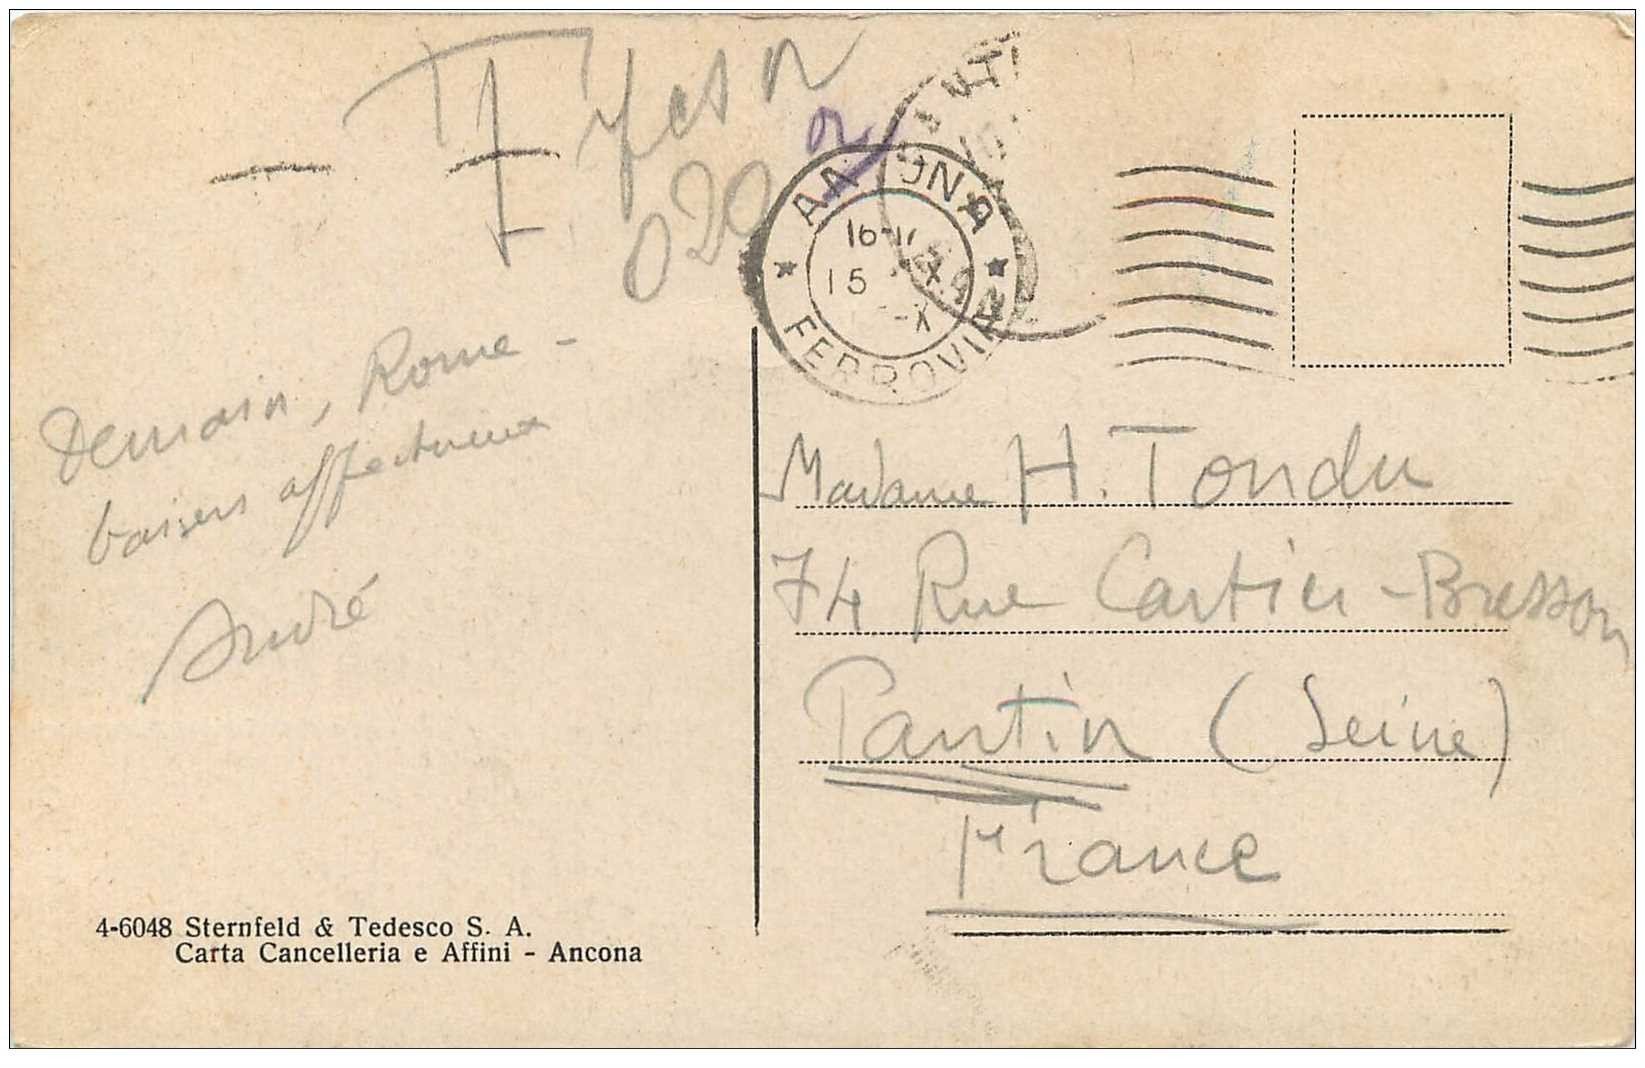 T
020
ANCONA
16-17
15
FERROVIA
Demain, Rome -
baisers affectueux
André
Madame H. Tondu
74 Rue Cartier-Bresson
Pantin (Seine)
France
4-6048 Sternfeld & Tedesco S. A.
Carta Cancelleria e Affini - Ancona